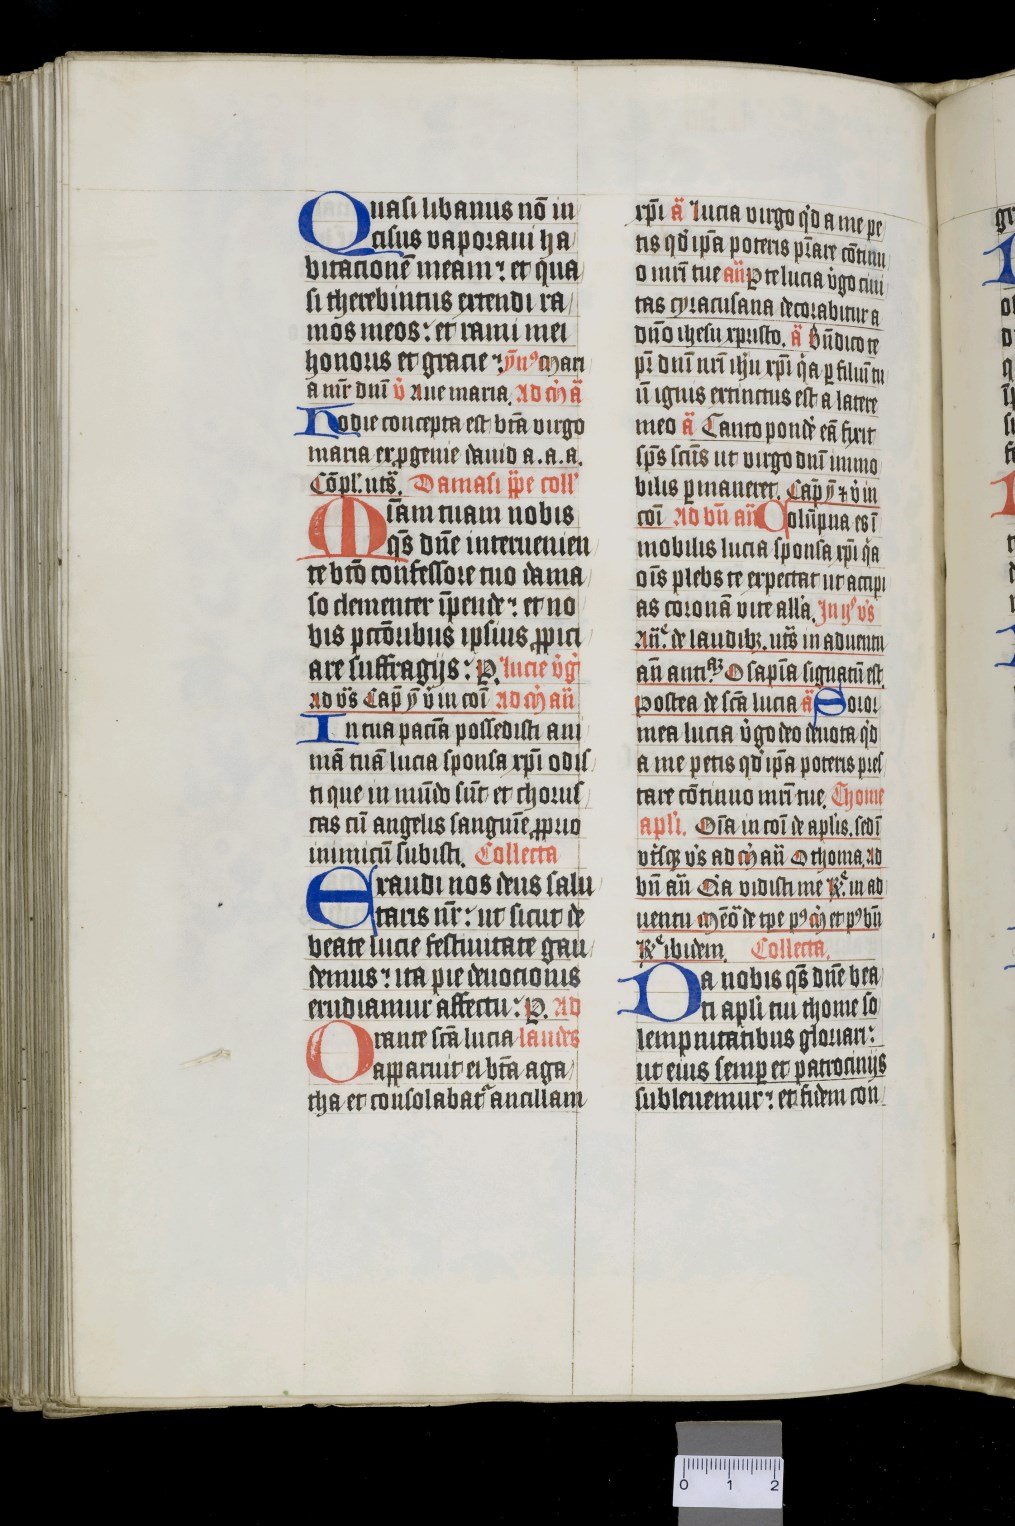 Quasi libanus nō in
cisus vaporaui ha
bitacionē meam: et qua
si therebintus extendi ra
mos meos: et rami mei
honoris et gracie: ȳn9 Mari
a mr̄ dnī v̄ Aue maria. Ad m̄ ā
Hodie concepta est btā virgo
maria ex progenie dauid a. a. a.
Cōpl'. uts̄. Damasi pp̄e coll'
Mīam tuam nobis
qs̄ dn̄e interuenien
te btō confessore tuo dama
so clementer īpende: et no
bis pctōribus ipsius ppici
are suffragijs: P. lucie v̄ḡ
Ad vs̄ Cap̄ ȳ v̄ in coī Ad m̄ añ
In tua paciā possedisti ani
mā tuā lucia sponsa xpī odis
ti que in mūdo sūt et chorus
cas cū angelis sanguīe pprio
inimicū subisti. Collecta
Exaudi nos deus salu
taris nr̄: ut sicut de
beate lucie festiuitate gau
demus: ita pie deuocionis
erudiamur affectu: P. Ad
Orante scā lucia laudes
apparuit ei btā aga
tha et consolabat̄ ancillam
xpī ā lucia virgo qd̄ a me pe
tis qd̄ ipā poteris pr̄are cōtinu
o mrī tue añ P te lucia v̄go ciui
tas cyracusana decorabitur a
dnō ihesu xpristo. ā Bn̄dico te
pr̄ dnī nrī ihū xpī qa p filiū tu
ū ignis extinctus est a latere
meo ā Tanto pondē eā fixit
sp̄s scūs ut virgo dnī immo
bilis pmaneret. Cap̄ ȳ z v̄ in
coī Ad bn̄ añ Colūpna es ī
mobilis lucia sponsa xpī qa
oīs plebs te expectat ut accipi
as coronā vite alla. In ijs vs̄
Añe de laudibz. uts̄ in aduentu
añ anti O sapīa signatū est
postea de scā lucia ā Soror
mea lucia v̄go deo deuota qd̄
a me petis qd̄ ipā poteris pres
tare cōtinuo mrī tue. Thome
apli. Oīa in coī de aplīs. sed ī
vtisq̄ vs̄ ad m̄ añ O thoma. Ad
bn̄ añ Q̄a vidisti me Re in ad
uentu Mēō de tpe p9 m̄ et p9 bn̄
Re ibidem. Collecta.
Da nobis qs̄ dn̄e bea
ti aplī tui thome so
lempnitatibus gloriari:
ut eius semp et patrocinijs
subleuemur: et fidem con